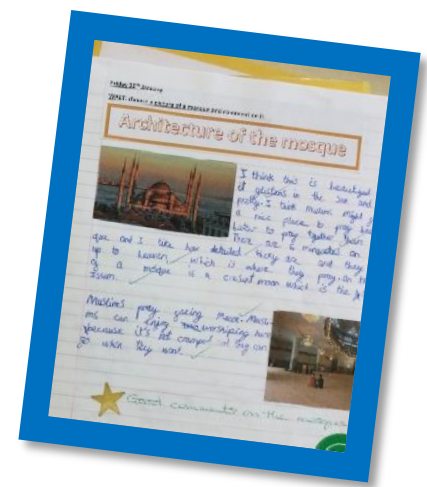 Friday 22nd January
WALT: choose a picture of a mosque and comment on it.
Architecture of the mosque
I think this is beautiful
it glistens in the sun and
pretty. I think muslims might
a nice place to pray
better to pray together than
There are 6 minarates on
que and I like how detailed they are and they
up to heaven, which is where they pray. on
of a mosque is a cresent moon which is the
Islam.
Muslims pray facing Mecca. Musli-
ms can enjoy worshiping here
because it's not cramped so they can
go when they want.
Good comments on the